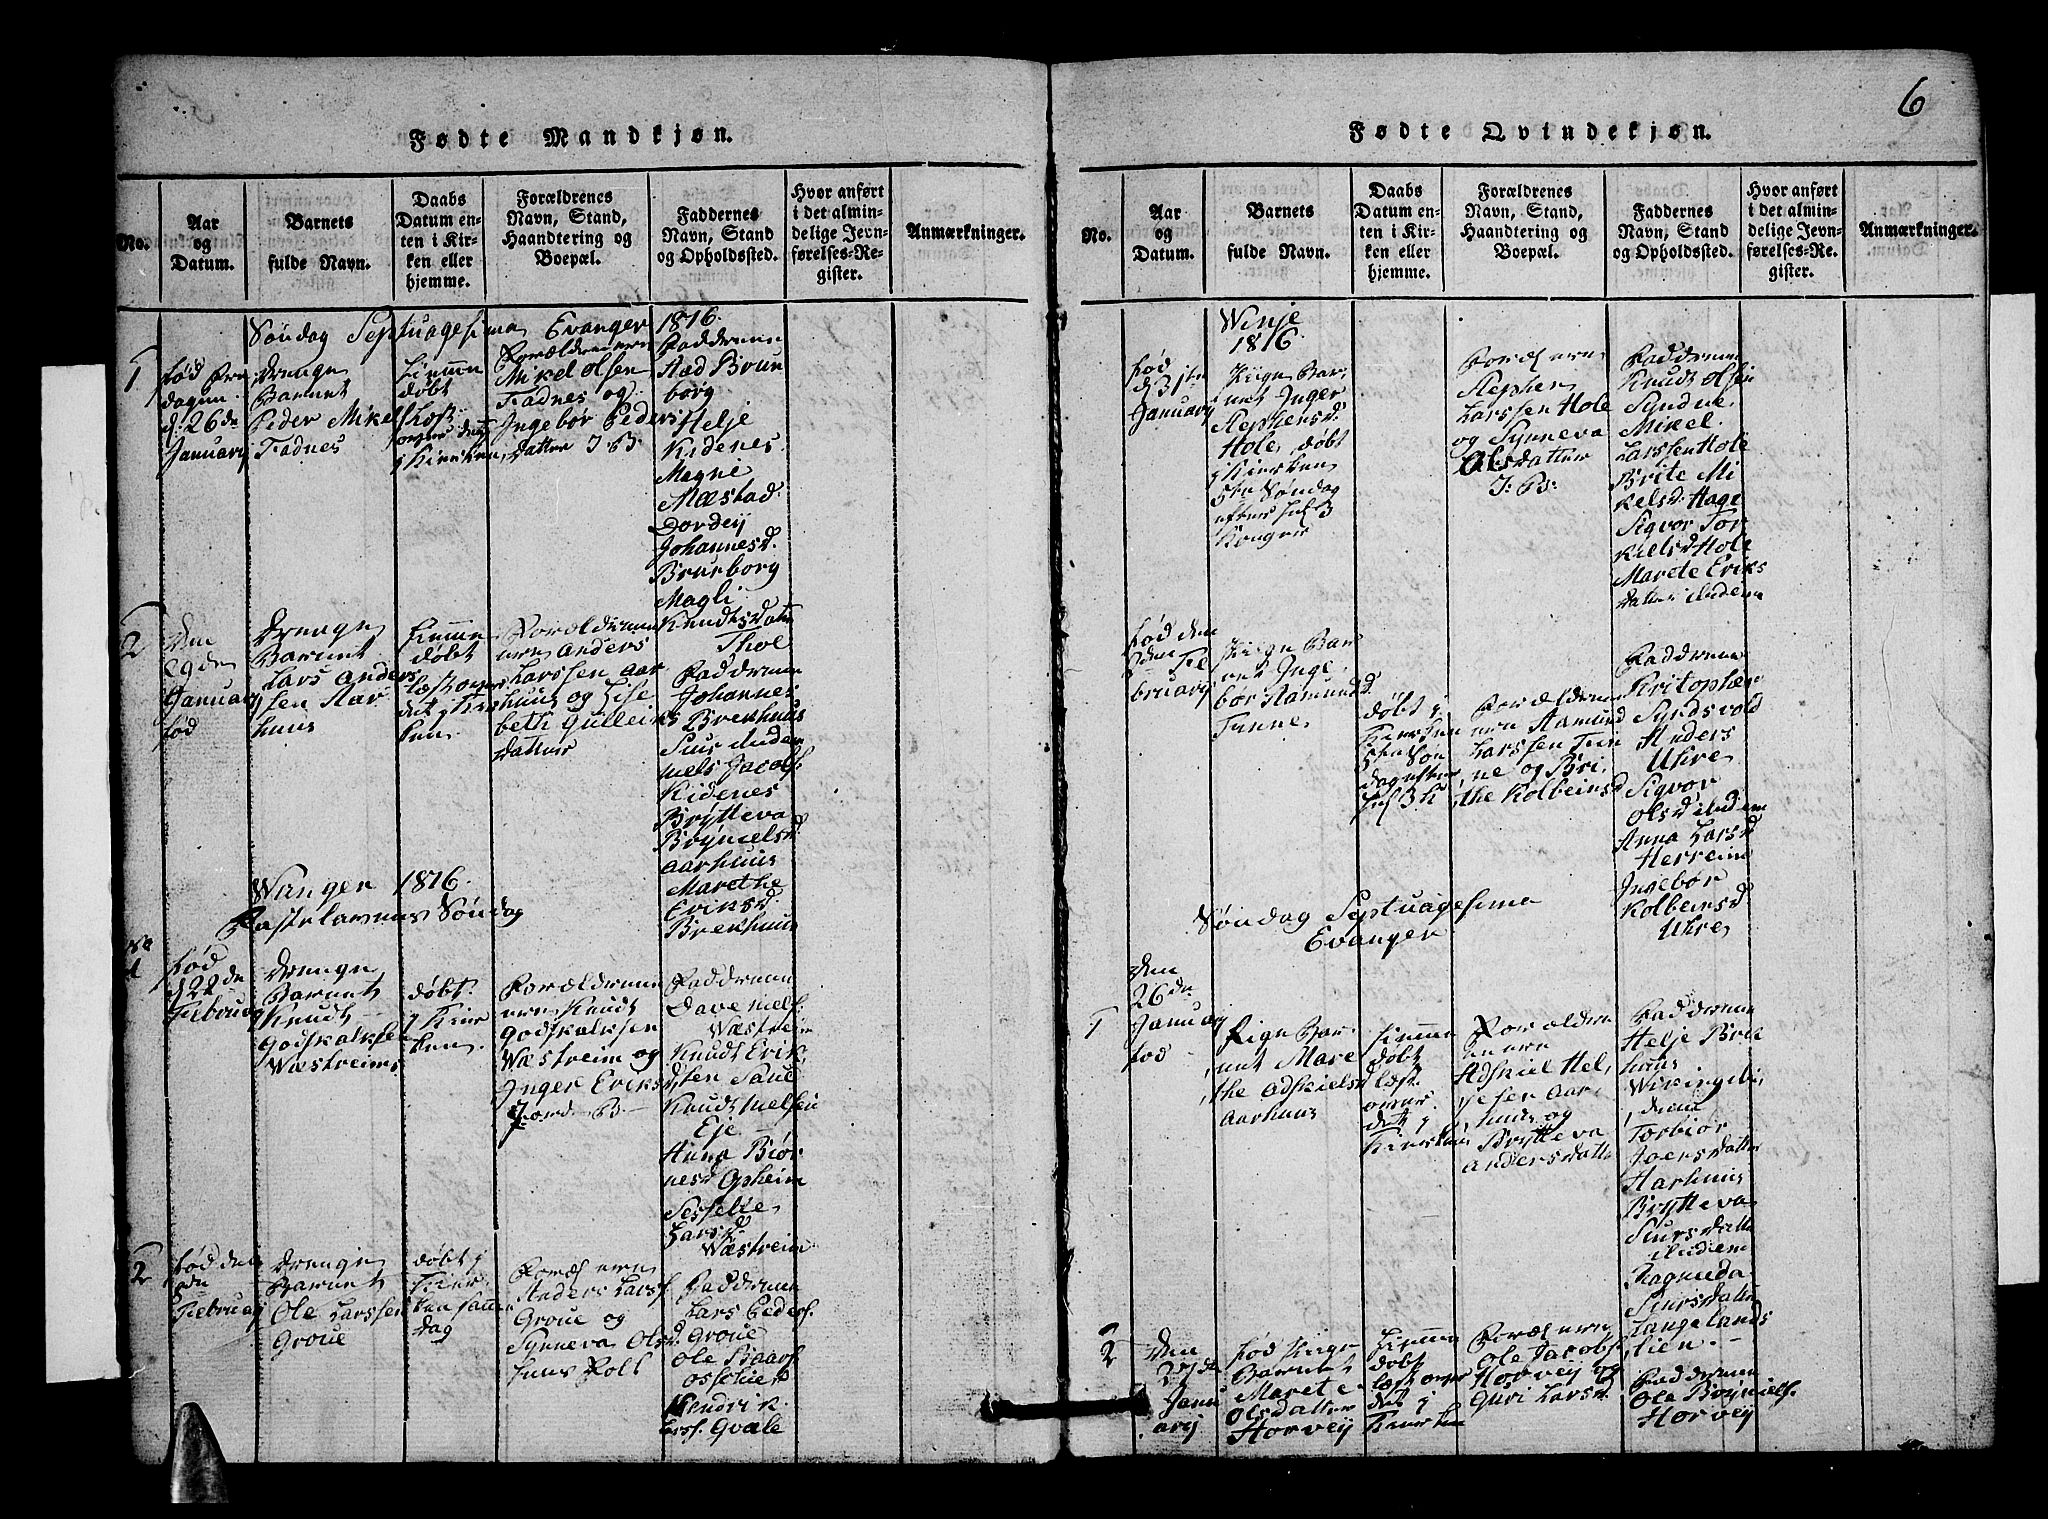 6
Fødte Mandkjøn.
No.
Aar
og
Datum.
Barnets
fulde Navn.
Daabs
Datum en-
ten i Kir-
ken eller
hjemme.
Forældrenes
Navn, Stand,
Haandtering og
Boepæl.
Faddernes
Navn, Stand
og Opholdssted.
Hvor anført
i det almin-
delige Jevn-
førelses-Re-
gister.
Anmærkninger.
Søndag Septuagesima Evanger 1816.
1
fød Fre
dagen
d: 26de
January
Drenge
Barnet
Peder Mikels
Fadnes
hiemme
døbt
læst
over det
i Kirken
Forældrene ere
Mikel Olsen
Fadnes og
Ingebør Peders
datter I B.
Faddrene
Aad Brun
borg
Helje
Kidenes
Magne
Mæstad
Dordeij
Johannesd.
Brunborg
Magli
Knudtsdatr
Thoe
2
Den
29de
January
fød
Drenge
Barnet
Lars Anders
sen Aar
huus
hiemme
døbt
læst over
det i Kir
ken
Forældrene
ere Anders
Larssen Aar
huus og Lise
beth Gulleiks
datter
Faddrene
Johannes
Brekhuus
Siur Mudem
Niels Jacobs.
Kidenes
Brytteva
Brynielsd.
Aarhuus
Marethe
Eriksd.
Brekhuus
Wanger 1816.
Fastelavens Søndag
No
1
fød
d 22de
Februay
Drenge
Barnet
Knudt
Godskalksen
Wæstreim
døbt
i Kir
ken
Forældrene
ere Knudt
Godskalksen
Wæstreim og
Inger Eriksd.
Jord B
Faddrene
Dave Niels.
Wæstreim
Knudt Erik
sen Saue
Knudt Nielsen
Eje
Anna Biør
nesd. Opheim
Sesselie
Larsd.
Wæstreim
2
fød den
Februay
Drenge
Barnet
Ole Larssen
Groue
døbt i
Kir
ken samme
dag
Foræl ere
Anders Larss.
Groue og
Synneva Olsd.
huus Folk
Faddrene
Lars Peders.
Groue
Ole Baars.
Hendrik
Larss. Gvale
Fødte Qvindekjøn.
No.
Aar
og
Datum.
Barnets
fulde Navn.
Daabs
Datum en-
ten i Kir-
ken eller
hjemme.
Forældrenes
Navn, Stand,
Haandtering og
Boepæl.
Faddernes
Navn, Stand
og Opholdssted.
Hvor anført
i det almin-
delige Jevn-
førelses-Re-
gister.
Anmærkninger.
Winje
1816.
fød
d 31te
January
Piige Bar
net Inger
Stephensd.
Hole, døbt
i Kirken
5te Søndag
efter hel 3
Konger
Foræl ere
Stephen
Larssen Hole
og Synneva
Olsdatter
J: B:
Faddrene
Knudt Olsen
Syndve
Mikel
Larssen Hole
Brite Mi
kelsd. Hage
Sigvor Tor
kielsd Hole
Marete Eriks
datter Mudem
fød den
den Fe
bruary
Piige Bar
net Inge
bør Aamundsd.
Finne
døbt i
Kirken
5te Søn
dag efter
hel 3 K
Forældrene
ere Aamund
Larssen Fin
ne og Bri
the Kolbeinsd
Faddrene
Kristophær
Syndsvold
Anders
Uhre
Sigvor
Olsd Mudem
Anna Larsd
Herreim
Ingebør
Kolbeinsd
Uhre
Søndag Septuagesima
Evanger
1
Den
26de
January
fød
Pige Bar
net Mare
the Adskielsd
Aarhuus
hiemme
døbt
læst
over
det i
Kirken
Forældrene
ere
Adskiel Hel
jesen Aar
huus og
Brytteva
Andersdatter
Faddrene
Helje Brek
huus
Torbiør
Joersdatter
Aarhuus
Brytteva
Siursdatter
Mudem
Ragneda
Siursdatter
Langelands
lien.
2
Den
27de
Janu
ary
fød Pige
Barnet
Marete
Olsdatter
Horvey
hiemme
døbt
læst over
det i
Kirken
Foræl ere
Ole Jacobs.
Horvey og
Guri Larsd.
Faddrene
Ole Bryniels.
Horvey